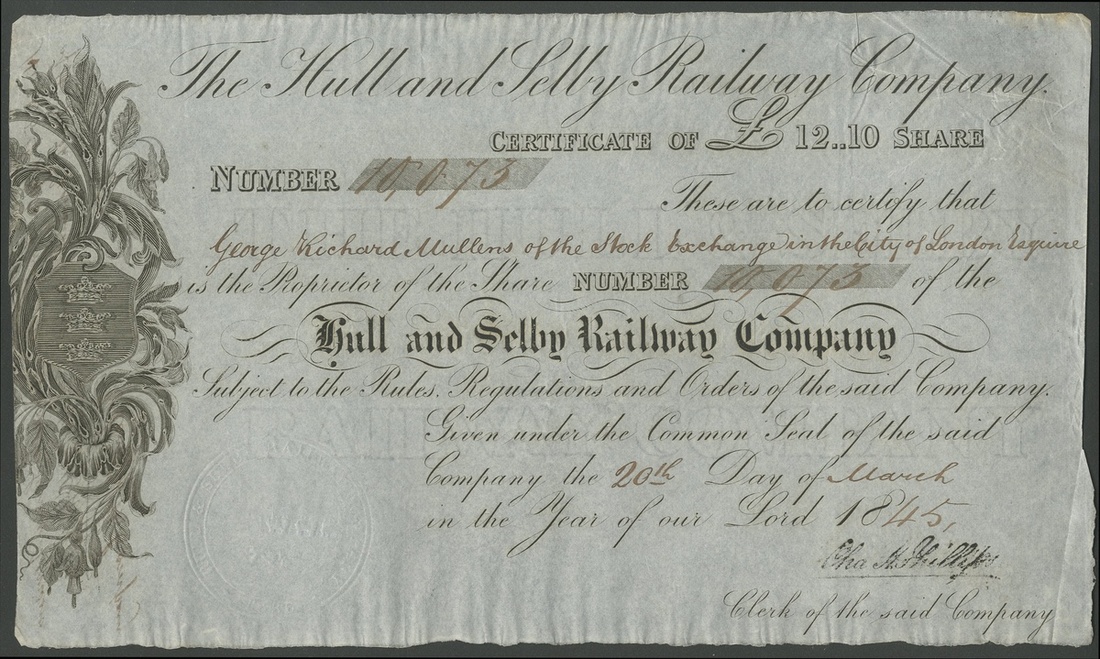 The Hull and Selby Railway Company.
CERTIFICATE OF £ 12..10 SHARE
NUMBER 10,073
These are to certify that
George Richard Mullens of the Stock Exchange in the City of London Esquire
is the Proprietor of the Share NUMBER 10,073 of the
Hull and Selby Railway Company
Subject to the Rules, Regulations and Orders of the said Company.
Given under the Common Seal of the said
Company the 20th Day of March
in the Year of our Lord 1845,
Cha A. Phillips
Clerk of the said Company